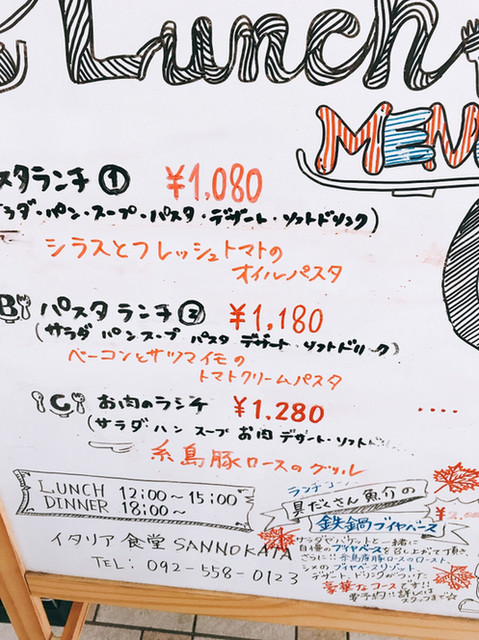 Lunch
MENU
スタランチ ① ¥1,080
ラダ・パン・スープ・パスタ・デザート・ソフトドリンク)
シラスとフレッシュトマトの
オイルパスタ
B パスタランチ ② ¥1,180
(サラダ パン スープ パスタ デザート・ソフトドリンク)
ベーコンとサツマイモの
トマトクリームパスタ
C お肉のランチ ¥1,280
(サラダ パン スープ お肉 デザート・ソフト
糸島豚ロースのグリル
LUNCH 12:00～15:00
DINNER 18:00～
イタリア食堂 SANNOKATA
TEL: 092-558-0123
ランチコース
具だくさん魚介の
鉄鍋ブイヤベース
サラダやバゲットと一緒に
自慢のブイヤベースを召し上がって頂き、
さらに!!糸島産豚ロースのロースト、
シメのブイヤベースリゾット
デザート、ドリンクがついた
豪華なコースです!!
要予約!!詳しくは
スタッフまで☆